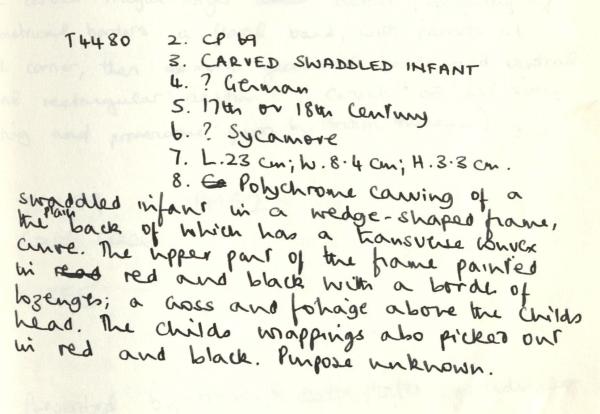 T4480 2. CP 69
3. CARVED SWADDLED INFANT
4. ? German
5. 17th or 18th Century
6. ? Sycamore
7. L.23 cm; W.8.4 cm; H.3.3 cm.
8. Polychrome carving of a
swaddled infant in a wedge-shaped frame,
the plain back of which has a transverse convex
curve. The upper part of the frame painted
in red and black with a border of
lozenges; a cross and foliage above the childs
head. The childs wrappings also picked out
in red and black. Purpose unknown.